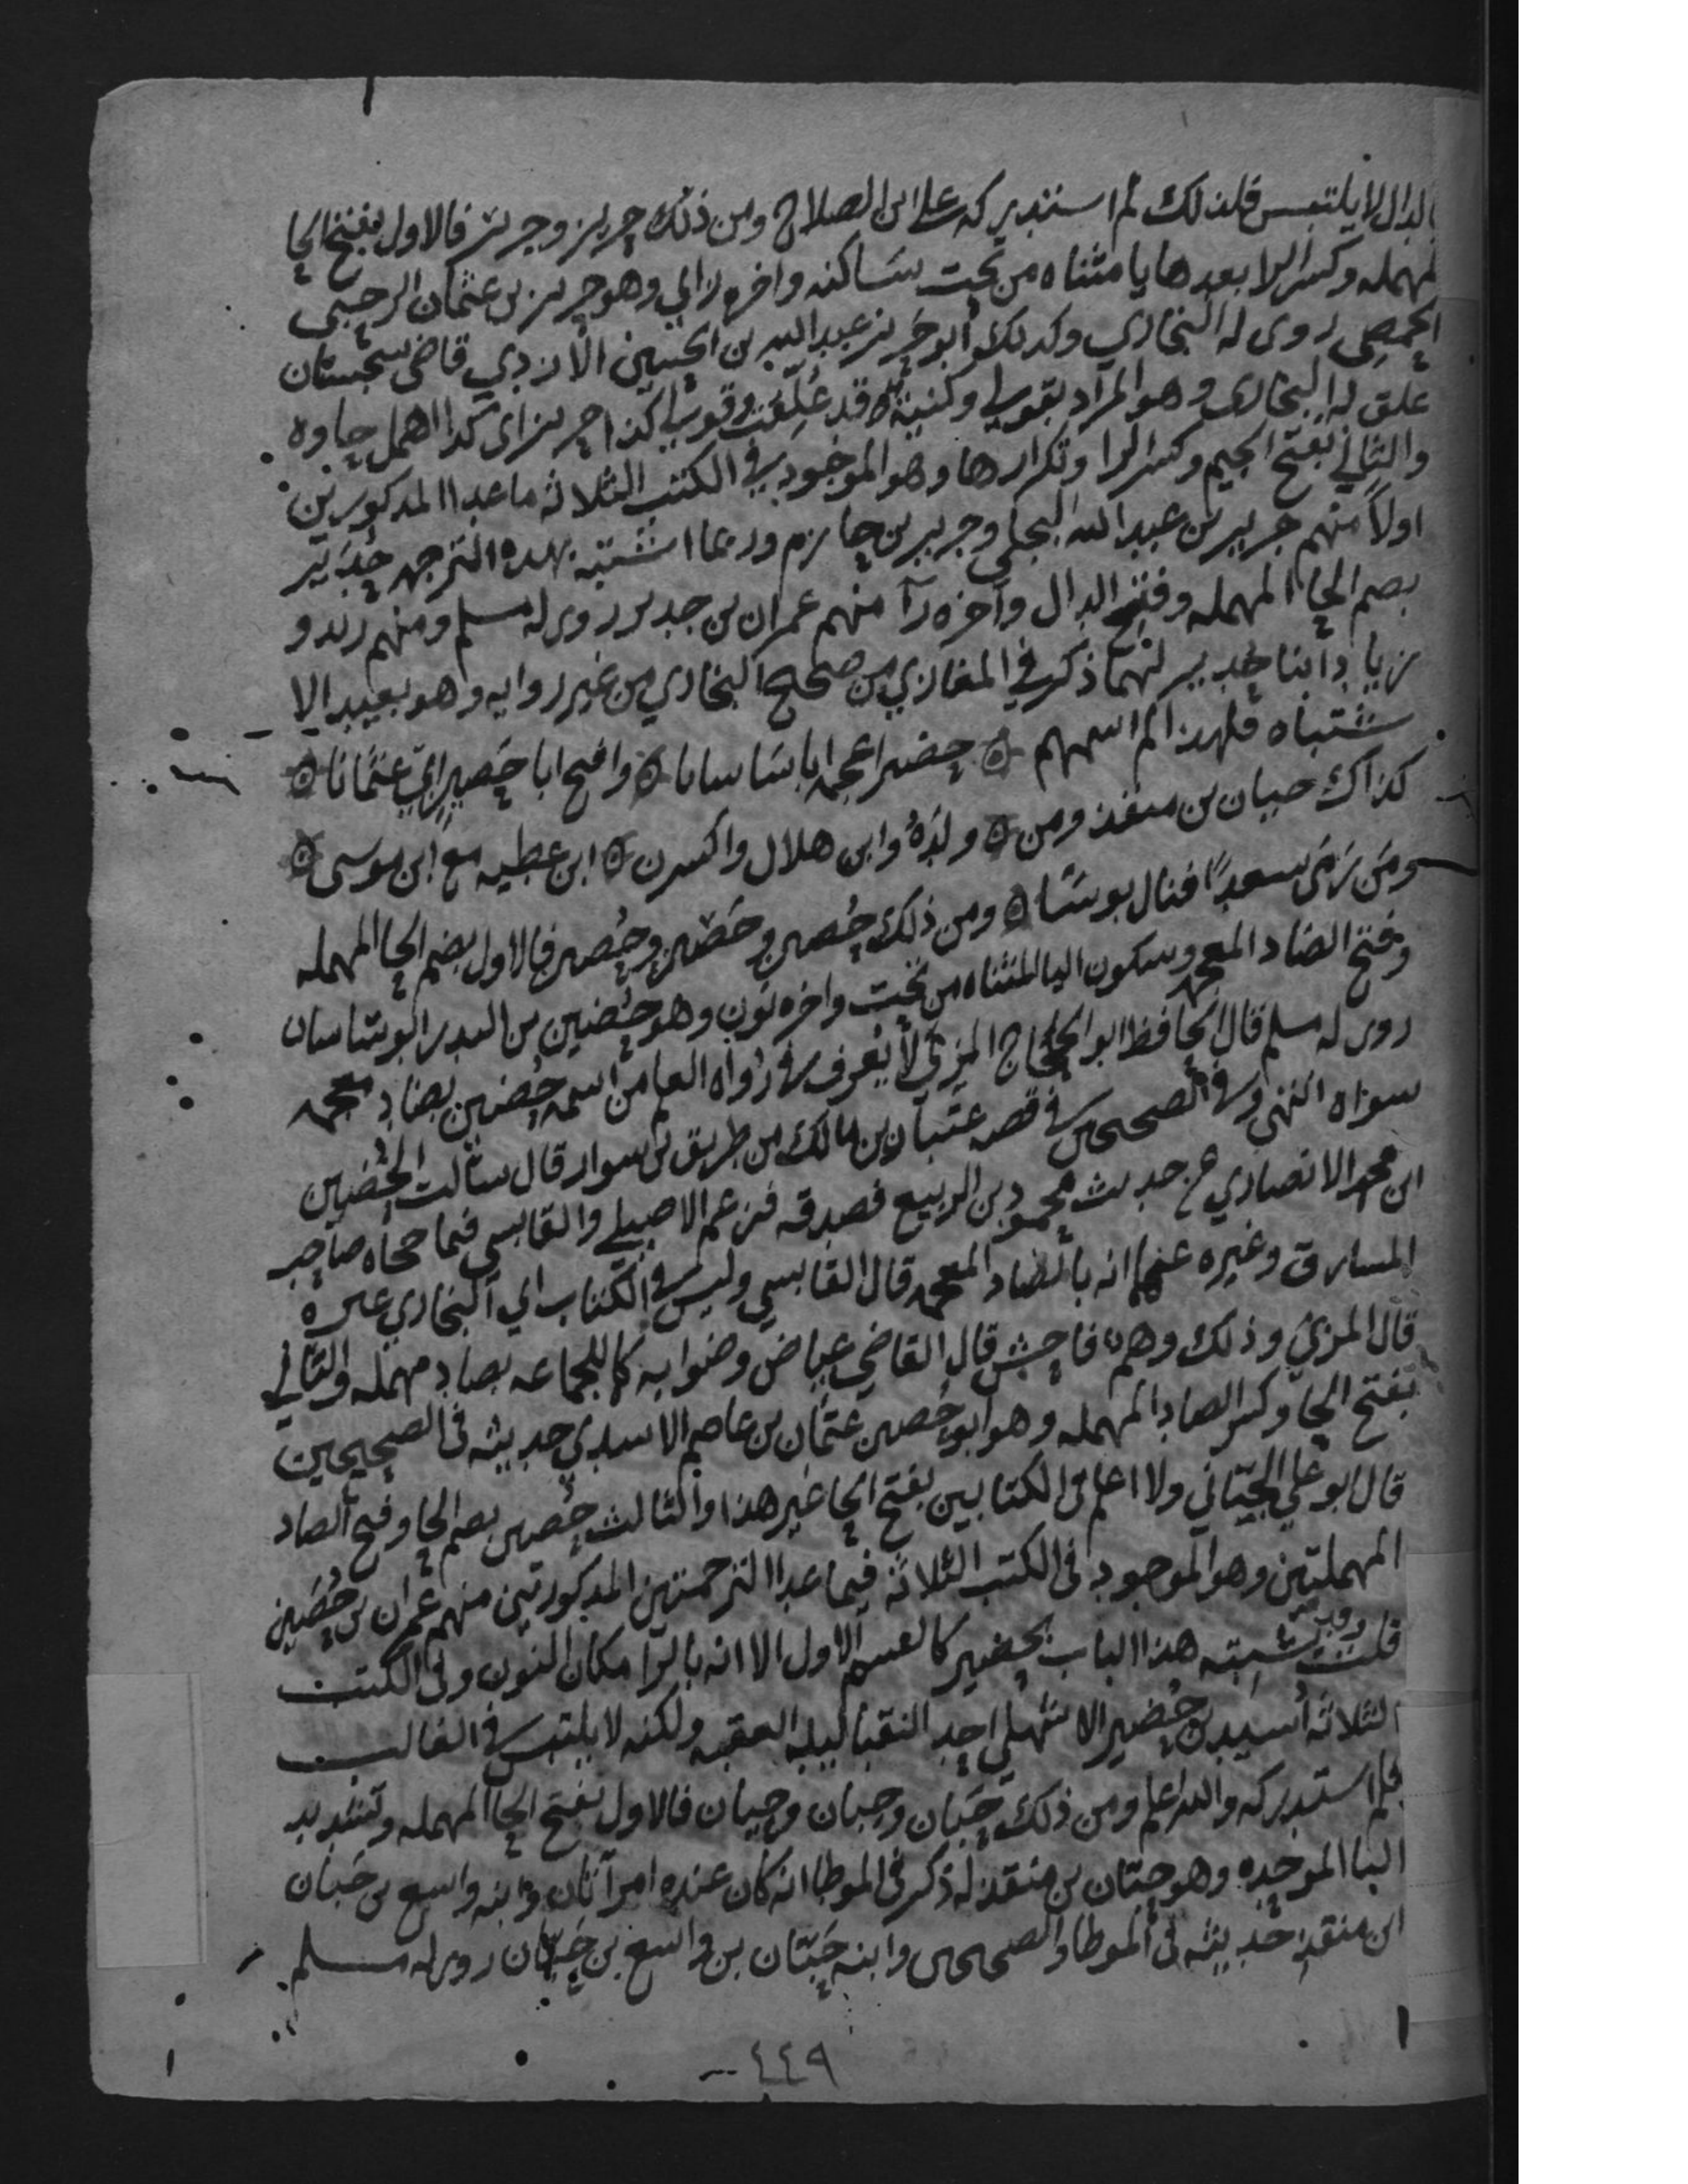 بالدال لا يلتبس فلذلك لم استدركه على ابن الصلاح ومن ذلك حريز وجرير فالاول بفتح الحا
المهمله وكسر الرا بعدها يا مثناه من تحت ساكنه واخره زاي وهو حريز بن عثمان الرحبي
الحمصي روى له البخاري وكذلك أبو حريز عبد الله بن الحسين الأزدي قاضي سجستان
علق له البخارى وهو المراد بقولي وكنية قد علقت وقولي كذا حريز اى كذا اهمل حاوه
والثاني بفتح الجيم وكسر الرا وتكرارها وهو الموجود في الكتب الثلاثه ما عدا المذكورين
اولاً منهم جرير بن عبد الله البجلي وجرير بن حازم وربما اشتبه بهذه الترجمه حُدَير
بضم الحا المهمله وفتح الدال وآخره رآ منهم عمران بن حدير روى له مسلم ومنهم زيد و
زياد ابنا حدير لهما ذكر في المغازي من صحيح البخاري من غير روايه وهو بعيد الا
شتباه فلهذا لم اسمهم ۞ حضين اعجمه ابا ساسانا ۞ وافتح ابا حَصِين اي عثمانا ۞
كذاك حبان بن منقذ ومن ۞ ولَدَهُ وابن هلال واكسرن ۞ ابن عطيه مع ابن موسى ۞
ومَن رَمَى سعدًا فنال بوسَا ۞ ومن ذلك حُضين وحَصين وحُصين فالاول بضم الحا المهمله
وفتح الضاد المعجمه وسكون اليا المثناه من تحت واخره نون وهو حُضين بن المنذر ابو ساسان
روى له مسلم قال الحافظ ابو الحجاج المزي لا يُعرف في رواه العلم من اسمه حُضين بضاد معجمه
سواه انتهى وفي الصحيحين في قصه عتبان بن مالك من طريق بن سوار قال سألت الحُضين
ابن محمد الانصاري عن حديث محمود بن الربيع فصدقه فزعم الاصيلي والقابسي فيما حكاه صاحب
المشارق وغيره عنهما انه بالضاد المعجمه قال القابسي وليس في الكتاب اي البخاري غيره
قال المزي وذلك وهم فاحش قال القاضي عياض وصوابه كما للجماعه بصاد مهمله والثاني
بفتح الحا وكسر الصاد المهمله وهو ابو حَصين عثمان بن عاصم الاسدي حديثه في الصحيحين
قال ابو علي الجيّاني ولا اعلم في الكتابين بفتح الحا غير هذا والثالث حُصين بضم الحا وفتح الصاد
المهملتين وهو الموجود في الكتب الثلاثه فيما عدا الترجمتين المذكورتين منهم عمران بن حُصَين
قلت وربما يشتبه هذا الباب بحضير كالقسم الاول الا انه بالرا مكان النون وفي الكتب
الثلاثه أُسَيد بن حُضير الاشهلي احد النقبا ليله العقبه ولكنه لا يلتبس في الغالب
فلم استدركه والله اعلم ومن ذلك حَبَّان وحِبان وحيان فالاول بفتح الحا المهمله وتشديد
البا الموحده وهو حبّان بن منقذ له ذكر في الموطا انه كان عنده امرأتان وابنه واسع بن حَبان
ابن منقذ حديثه في الموطا والصحيحين وابنه حَبّان بن واسع بن حَبان روى له مسلم
٤٤٩